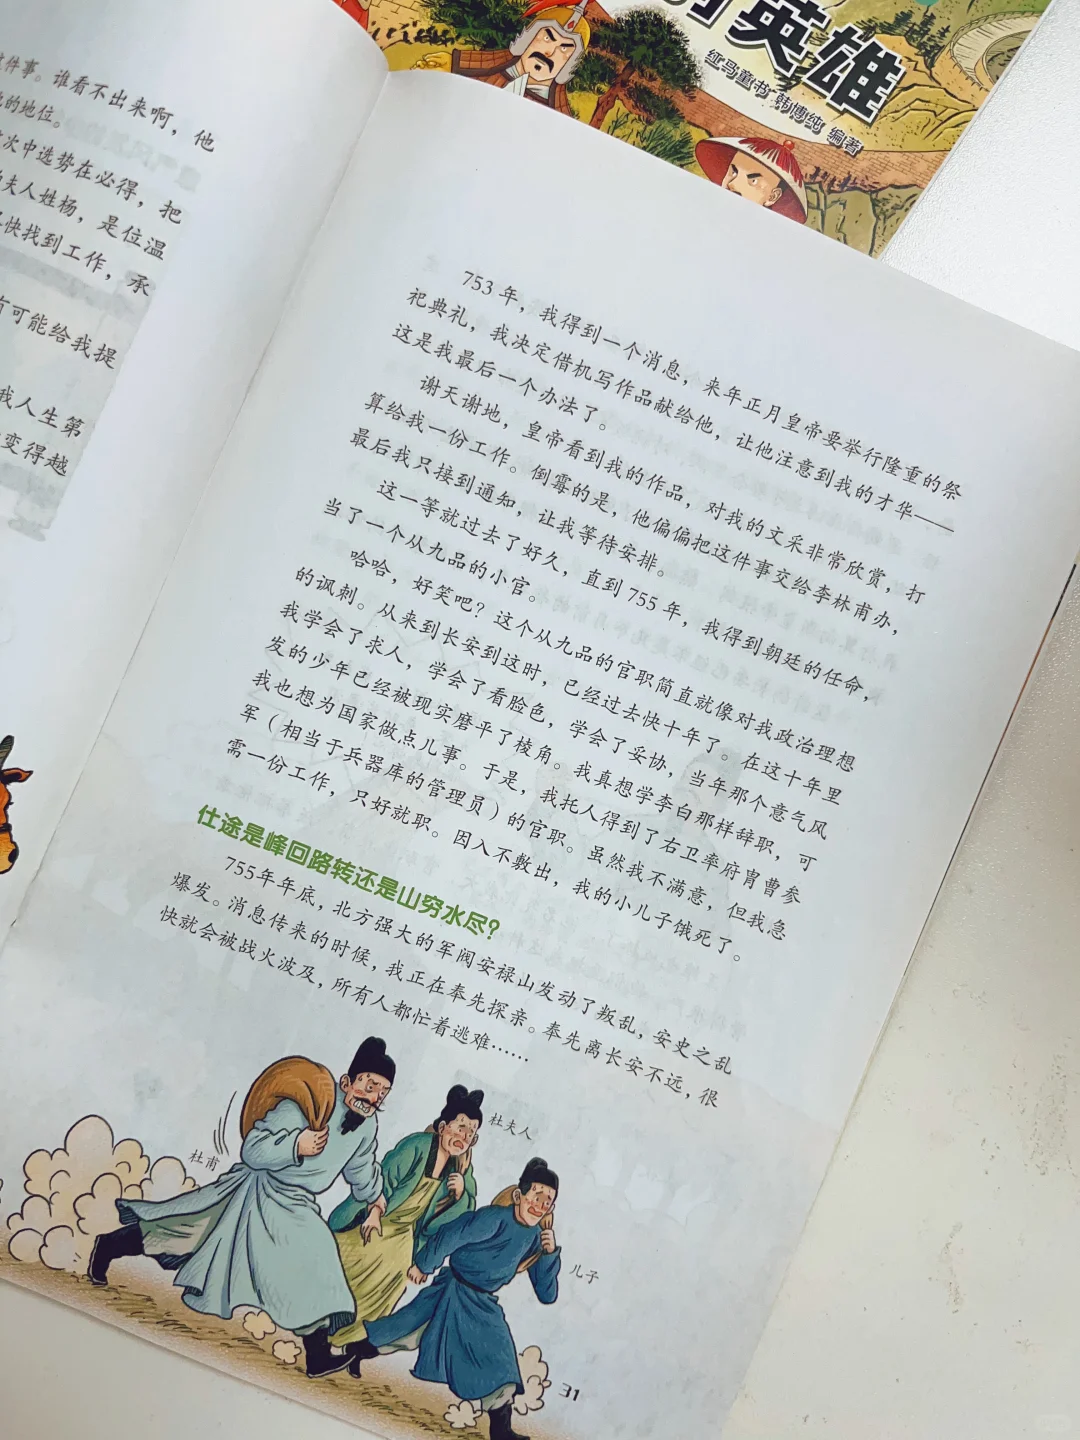 英雄
红马童书 韩博纯 编著
件事。谁看不出来啊，他
的地位。
次中选势在必得，把
夫人姓杨，是位温
快找到工作，承
有可能给我提
我人生第
变得越
753年，我得到一个消息，来年正月皇帝要举行隆重的祭
祀典礼，我决定借机写作品献给他，让他注意到我的才华——
这是我最后一个办法了。
谢天谢地，皇帝看到我的作品，对我的文采非常欣赏，打
算给我一份工作。倒霉的是，他偏偏把这件事交给李林甫办，
最后我只接到通知，让我等待安排。
这一等就过去了好久，直到755年，我得到朝廷的任命，
当了一个从九品的小官。
哈哈，好笑吧？这个从九品的官职简直就像对我政治理想
的讽刺。从来到长安到这时，已经过去快十年了。在这十年里
我学会了求人，学会了看脸色，学会了妥协，当年那个意气风
发的少年已经被现实磨平了棱角。我真想学李白那样辞职，可
我也想为国家做点儿事。于是，我托人得到了右卫率府胄曹参
军（相当于兵器库的管理员）的官职。虽然我不满意，但我急
需一份工作，只好就职。因入不敷出，我的小儿子饿死了。
仕途是峰回路转还是山穷水尽？
755年年底，北方强大的军阀安禄山发动了叛乱，安史之乱
爆发。消息传来的时候，我正在奉先探亲。奉先离长安不远，很
快就会被战火波及，所有人都忙着逃难……
杜甫
杜夫人
儿子
31